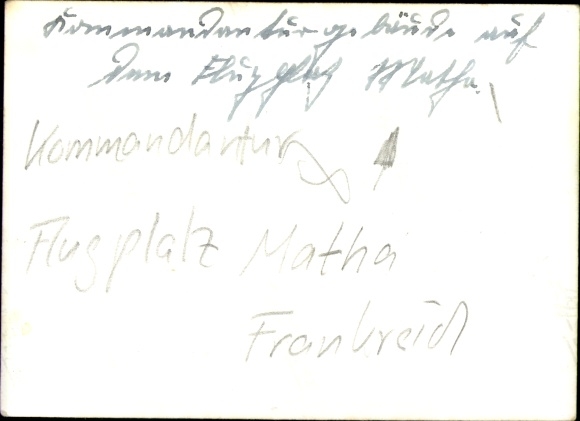 Kommandanturgebäude auf
dem Flugplatz Matha.
Kommandantur
Flugplatz Matha
Frankreich